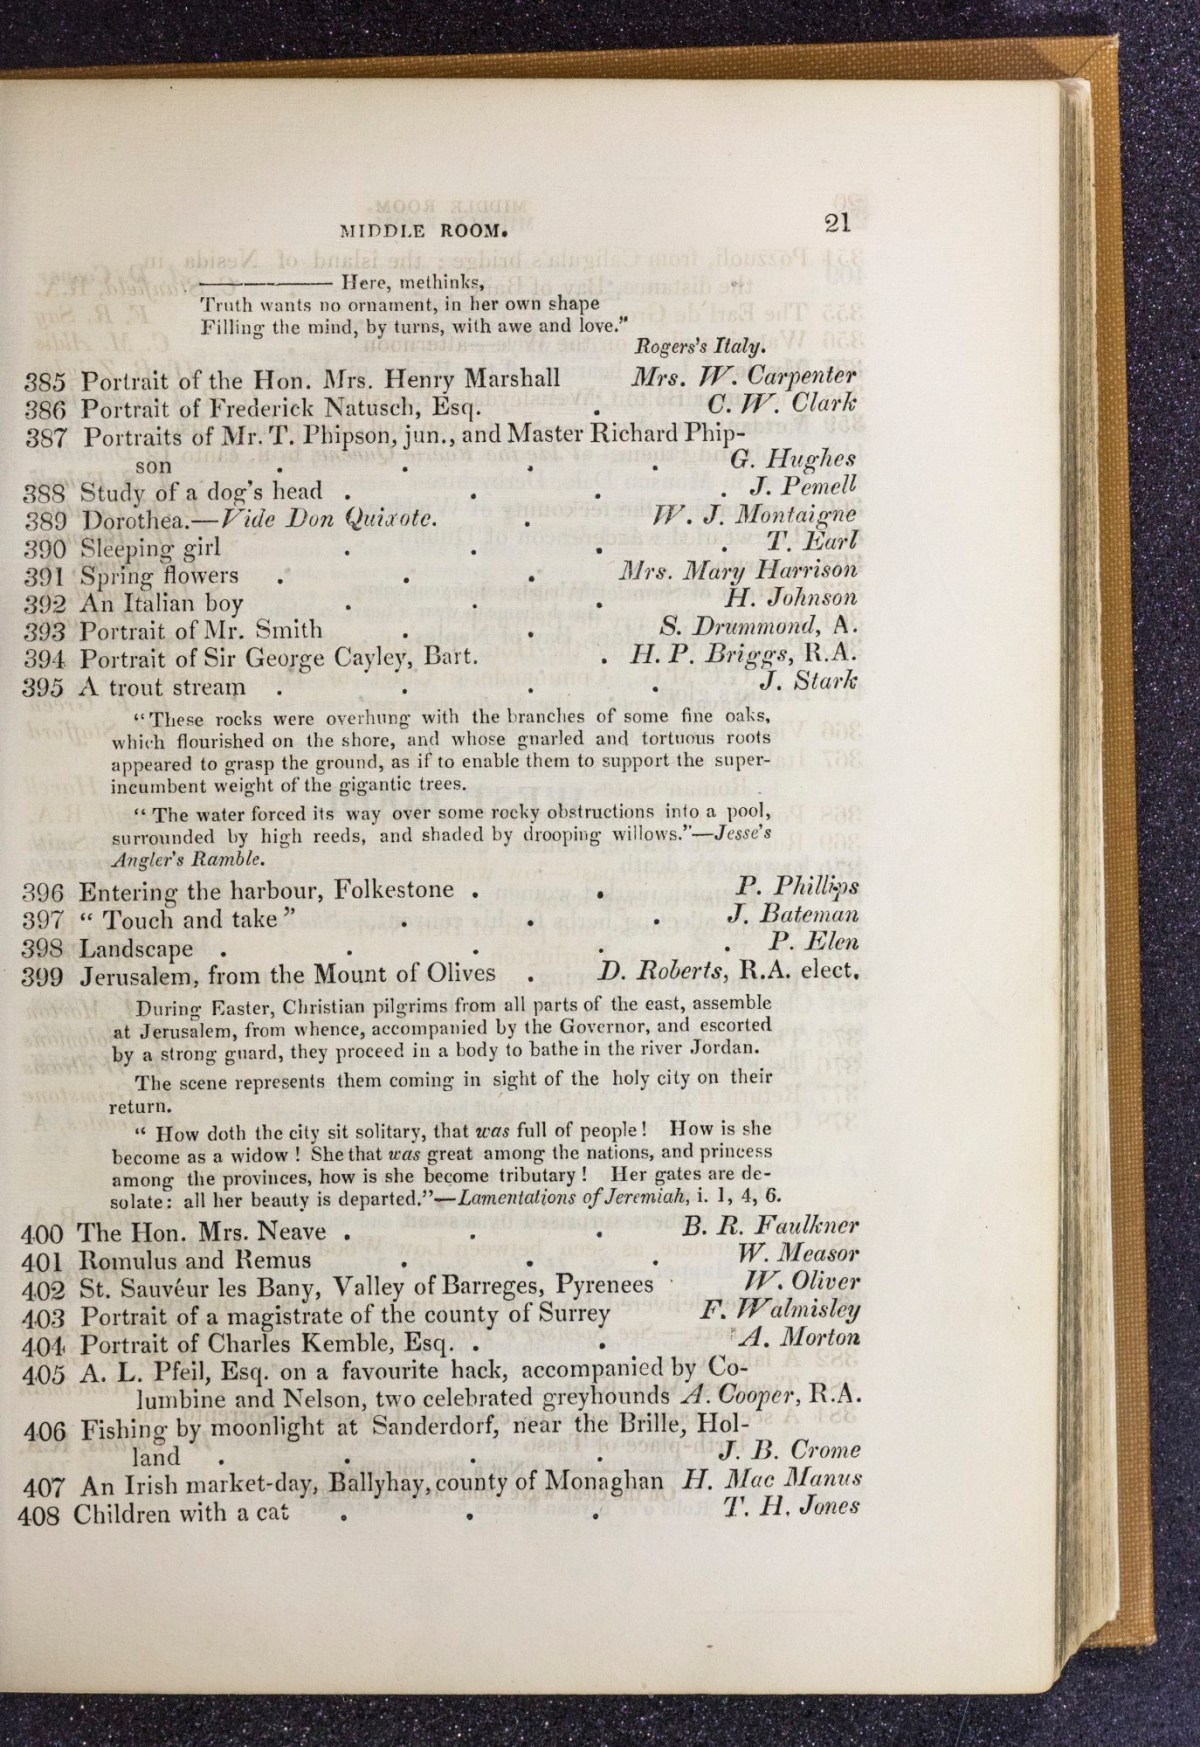 MIDDLE ROOM. 21
—————— Here, methinks,
Truth wants no ornament, in her own shape
Filling the mind, by turns, with awe and love.”
Rogers's Italy.
385 Portrait of the Hon. Mrs. Henry Marshall Mrs. W. Carpenter
386 Portrait of Frederick Natusch, Esq. . C. W. Clark
387 Portraits of Mr. T. Phipson, jun., and Master Richard Phip-
son . . . . G. Hughes
388 Study of a dog's head . . . . J. Pemell
389 Dorothea.—Vide Don Quixote. . W. J. Montaigne
390 Sleeping girl . . . . T. Earl
391 Spring flowers . . . Mrs. Mary Harrison
392 An Italian boy . . . H. Johnson
393 Portrait of Mr. Smith . . S. Drummond, A.
394 Portrait of Sir George Cayley, Bart. . H. P. Briggs, R.A.
395 A trout stream . . . . J. Stark
“These rocks were overhung with the branches of some fine oaks,
which flourished on the shore, and whose gnarled and tortuous roots
appeared to grasp the ground, as if to enable them to support the super-
incumbent weight of the gigantic trees.
“The water forced its way over some rocky obstructions into a pool,
surrounded by high reeds, and shaded by drooping willows.”—Jesse's
Angler's Ramble.
396 Entering the harbour, Folkestone . . P. Phillips
397 “Touch and take” . . . J. Bateman
398 Landscape . . . . . P. Elen
399 Jerusalem, from the Mount of Olives . D. Roberts, R.A. elect.
During Easter, Christian pilgrims from all parts of the east, assemble
at Jerusalem, from whence, accompanied by the Governor, and escorted
by a strong guard, they proceed in a body to bathe in the river Jordan.
The scene represents them coming in sight of the holy city on their
return.
“How doth the city sit solitary, that was full of people! How is she
become as a widow! She that was great among the nations, and princess
among the provinces, how is she become tributary! Her gates are de-
solate: all her beauty is departed.”—Lamentations of Jeremiah, i. 1, 4, 6.
400 The Hon. Mrs. Neave . . . B. R. Faulkner
401 Romulus and Remus . . . W. Measor
402 St. Sauvéur les Bany, Valley of Barreges, Pyrenees W. Oliver
403 Portrait of a magistrate of the county of Surrey F. Walmisley
404 Portrait of Charles Kemble, Esq. . . A. Morton
405 A. L. Pfeil, Esq. on a favourite hack, accompanied by Co-
lumbine and Nelson, two celebrated greyhounds A. Cooper, R.A.
406 Fishing by moonlight at Sanderdorf, near the Brille, Hol-
land . . . . J. B. Crome
407 An Irish market-day, Ballyhay, county of Monaghan H. Mac Manus
408 Children with a cat . . . T. H. Jones